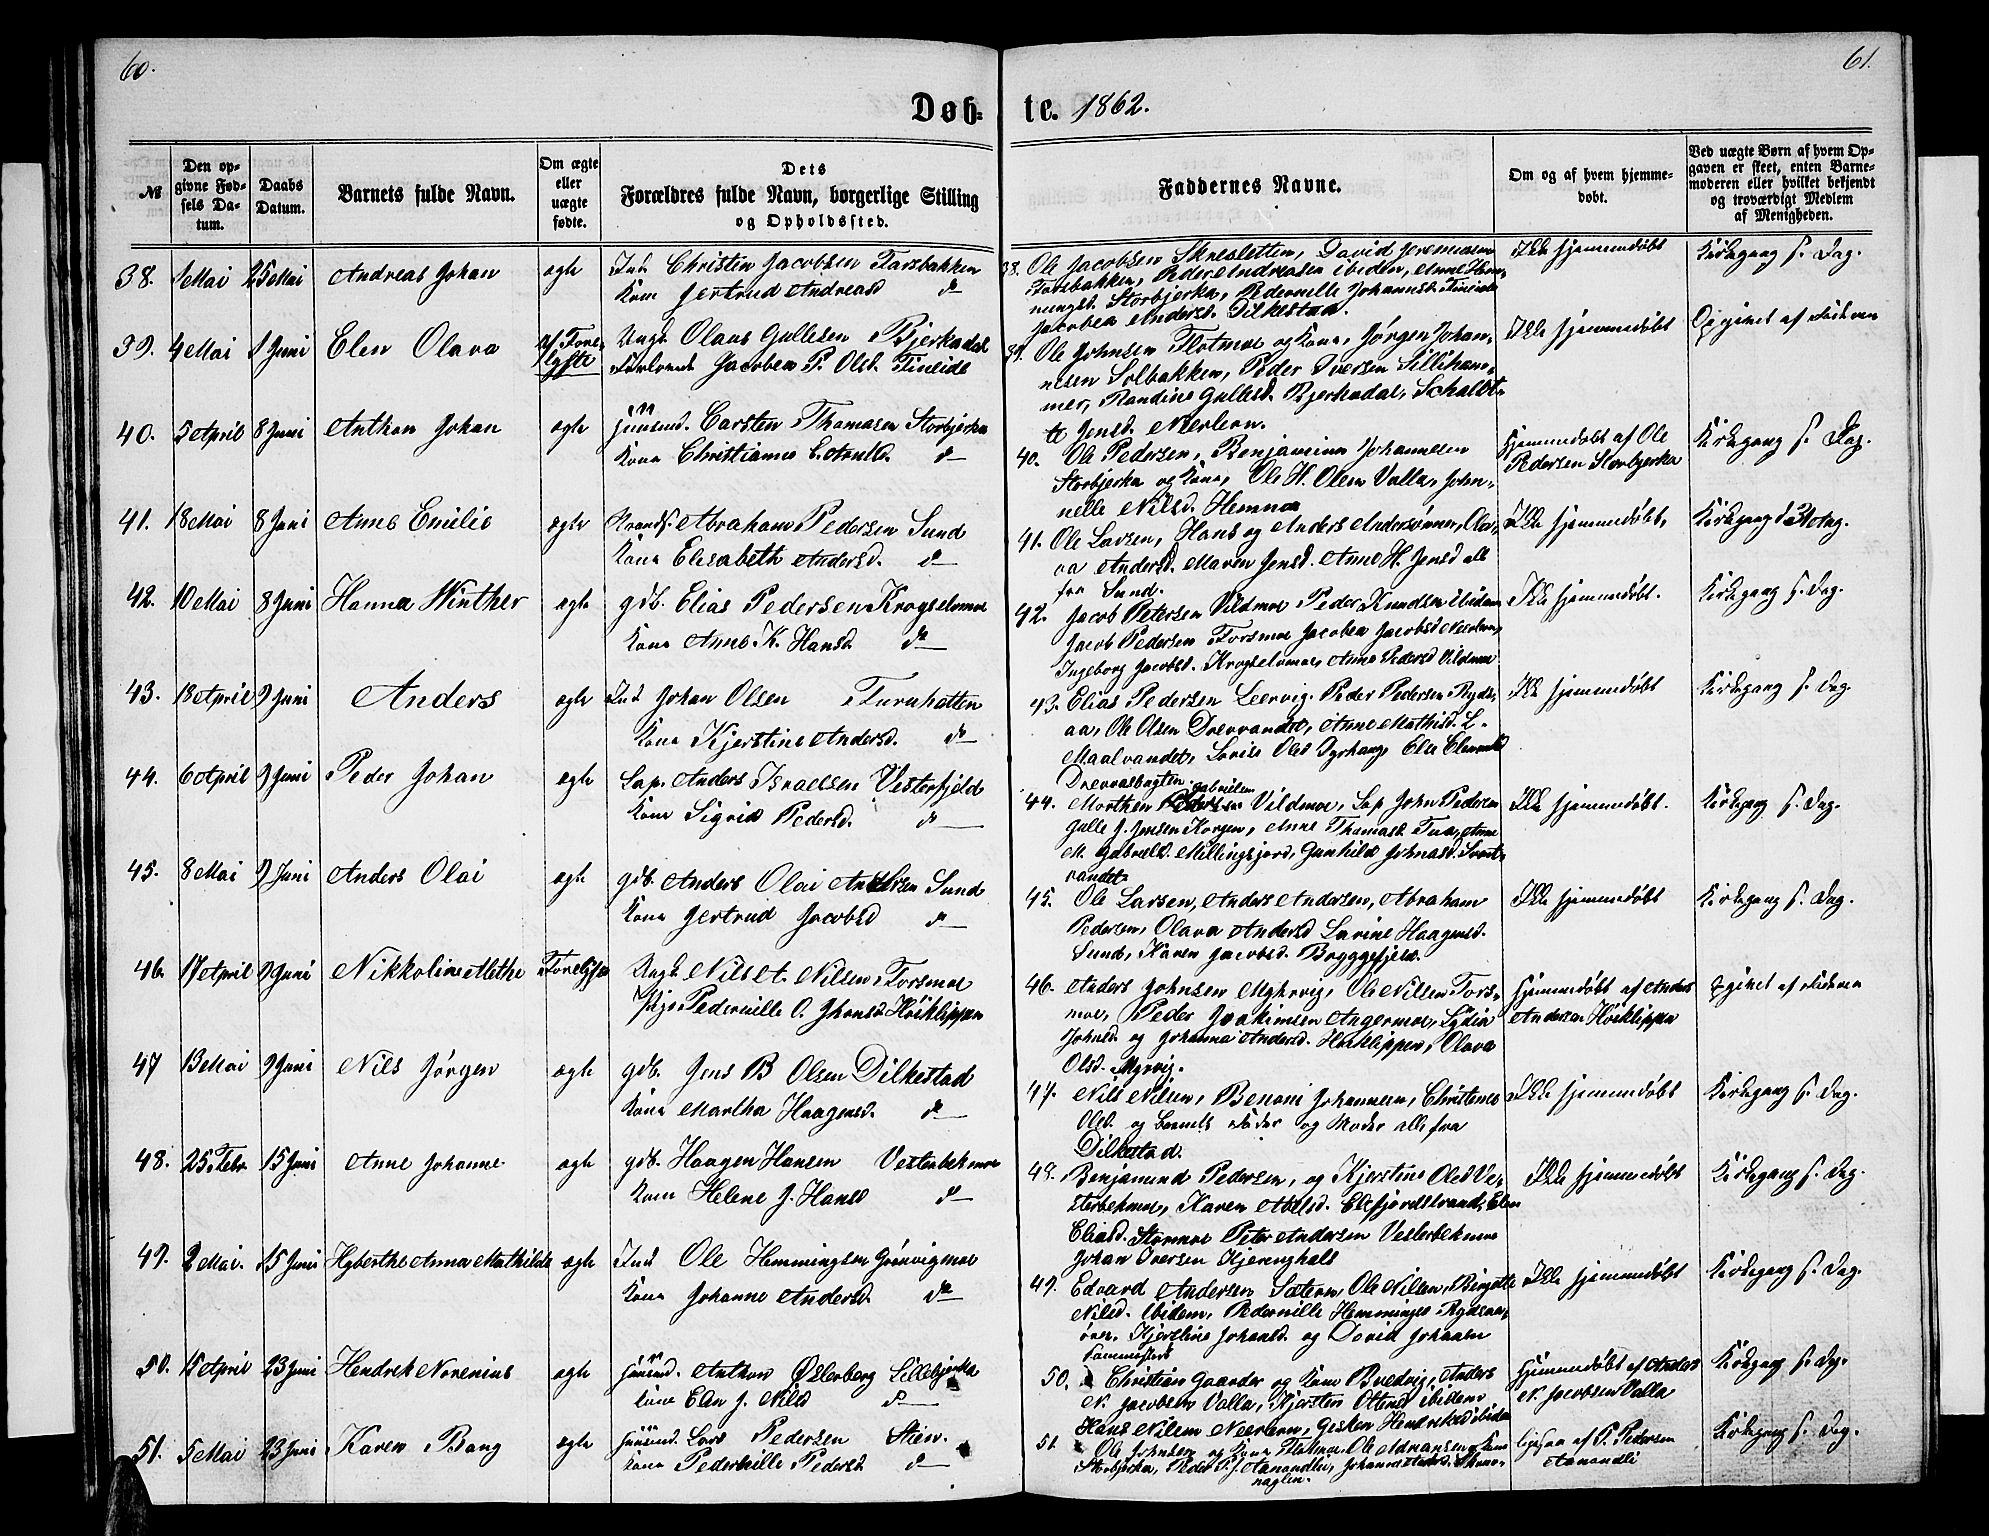 60.
61.
Døb-
te. 1862.
№
Den op-
givne Fød-
sels Da-
tum.
Daabs
Datum.
Barnets fulde Navn.
Om ægte
eller
uægte
fødte.
Dets
Forældres fulde Navn, borgerlige Stilling
og Opholdssted.
Faddernes Navne.
Om og af hvem hjemme-
døbt.
Ved uægte Børn af hvem Op-
gaven er skeet, enten Barne-
moderen eller hvilket bekjendt
og troværdigt Medlem
af Menigheden.
38. 1 Mai 25 Mai Andreas Johan ægte Ind Christen Jacobsen Forsbakken
Kone Gertrud Andreasd do
38. Ole Jacobsen Skresletten, David Jeremiasen
Forsbakken, Peder Andreasen ibidem, Anne Hem-
mingsd. Storbjerka, Pedernelle Johannesd. Fineide
Jacobea Andersd. Dilkestad.
Ikke hjemmedøbt
Kirkegang s. Dag.
39. 4 Mai 1 Juni Elen Olava af Fore-
lyste
Ungk Olaus Gullesen Bjerkadal
Forlovede Jacobea P. Olsd. Fineide
39. Ole Johnsen Flotmoe og Kone, Jørgen Johan-
nesen Solbakken, Peder Iversen Silliham-
mer, Randine Gullesd. Bjerkadal,
Jensd. Neerleren.
Ikke hjemmedøbt
Opgivet af Faderen
40. 5 April 8 Juni Anthon Johan ægte Huusmd. Carsten Thomasen Storbjerka
Kone Christianne E. Arntsd. do
40. Ole Pedersen, Benjaminn Johannesen
Storbjerka og Kone, Ole H. Olsen Valla, John-
nelle Nilsd. Hemnes
Hjemmedøbt af Ole
Pedersen Storbjerka
Kirkegang s. Dag.
41. 18 Mai 8 Juni Anne Emilie ægte Strands. Abraham Pedersen Sund
Kone Elisabeth Andersd. do
41. Ole Larsen, Hans og Anders Andersønner, Ola-
va Andersd. Maren Jensd. Anne H. Jensd alle
fra Sund.
Ikke hjemmedøbt.
Kirkegang
42. 10 Mai 8 Juni Hanna Winther ægte gdb. Elias Pedersen Krogselvmoe
Kone Anne K. Hansd do
42. Jacob Petersen Vildmoe Peder Knudsen ibidem
Jacob Pedersen Forsmoe Jacobea Jacobsd Neerleren,
Ingeborg Jacobsd. Krogselvmoe, Anne Pedersd Vildmoe
Ikke hjemmedøbt.
Kirkegang s. Dag.
43. 18 April 9 Juni Anders ægte Ind Johan Olsen Furuhatten
Kone Kjerstine Andersd. do
43. Elias Pedersen Leervig. Peder Pedersen Rydsa-
aa, Ole Olsen Drevvandet, Anne Mathisd. L-
Maalvandet, Lovise Olsd
Drevvasbugten.
Ikke hjemmedøbt
Kirkegang s. Dag.
44. 6 April 9 Juni Peder Johan ægte Lap. Anders Israelsen Vesterfjeld
Kone Sigrid Pedersd. do
Gabrielsen
44. Morthen Vildmoe, Lap John Pedersen
Gulle J. Jensen Korgen, Anne Thomasd. Anne
M. Gabrielsd. Millingsjord, Gunhild Johnasd. Svart-
vandet
Ikke hjemmedøbt.
Kirkegang s. Dag.
45. 8 Mai 9 Juni Anders Olai ægte gdb. Anders Olai Andersen Sund
Kone Gertrud Jacobsd do
45. Ole Larsen, Anders Andersen, Abraham
Pedersen, Olava Andersd Lavine Haagensd.
Sund, Karen Jacobsd. Bryggefjeld.
Ikke hjemmedøbt
Kirkegang s. Dag.
46. 17 April 9 Juni Nikkoline Methe Forelyste Ungk Nils A. Nilsen Forsmoe
Pige Pedernille O. Johansd. Høiklippen
46. Anders Johnsen Myhrvig, Ole Nilsen Fors-
moe, Peder Joakimsen Angermoe, Lydia
Johnsd. og Johanna Andersd. Høiklippen, Olava
Olsd. Myrvig.
Hjemmedøbt af Anders
Andersen Høiklippen
Opgivet af Faderen
47 13 Mai 9 Juni Nils Jørgen ægte gdb. Jens B Olsen Dilkestad
Kone Martha Haagensd. do
47. Nils Nilsen, Benoni Johannesen, Christense
Olsd. og Barnets Fader og Moder alle fra
Dilkestad.
Ikke hjemmedøbt
Kirkegang s. Dag.
48. 25 Febr. 15 Juni Anne Johanne ægte gdb. Haagen Hansen Vesterbekmoe
Kone Helene J. Hansd do
48. Benjamind Pedersen, og Kjerstine Olsd Ve-
sterbekmoe, Karen Abelsd. Elsfjordstrand, Elen
Eliasd. Stormoe Peter Andersen Vesterbekmoe
Johan Iversen Kjerenghals
Ikke hjemmedøbt
Kirkegang s. Dag.
49. 2 Mai. 15 Juni Hyberthe Anna Mathilde ægte Ind Ole Hemmingsen Grønvigmoe
Kone Johanne Andersd. do
49. Edvard Andersen Sæteren, Ole Nilsen, Birgitte
Nilsd. ibidem, Pedernille Hemmingsd Rydsaa-
øren. Kjerstine Johansd. og David Johnsen
Ikke hjemmedøbt
Kirkegang s. Dag.
50. 15 April 23 Juni Hendrik Norenius ægte Huusmd. Anthon Østerberg Lillebjerka
Kone Elen J. Nilsd do
50. Christian Gaarder og Kone Bredvig, Anders
N. Jacobsen Valla, Kjersten Ottesd ibidem
Hans Nilsen Neerleren, Gesken Henriksd ibidem
Hjemmedøbt af Anders
N. Jacobsen Valla
Kirkegang s. Dag.
51. 5 Mai 23 Juni Karen Bang ægte Huusmd. Lars Pedersen Stien.
Kone Pedernille Pedersd. do
51 Ole Johnsen og Kone Flotmoe Ole Adriansen og Kone
Storbjerka, Peder P. J. Aanondlie, Johanna
naglen.
ligesaa af P. Pedersen
Aanondli
Kirkegang s. Dag.